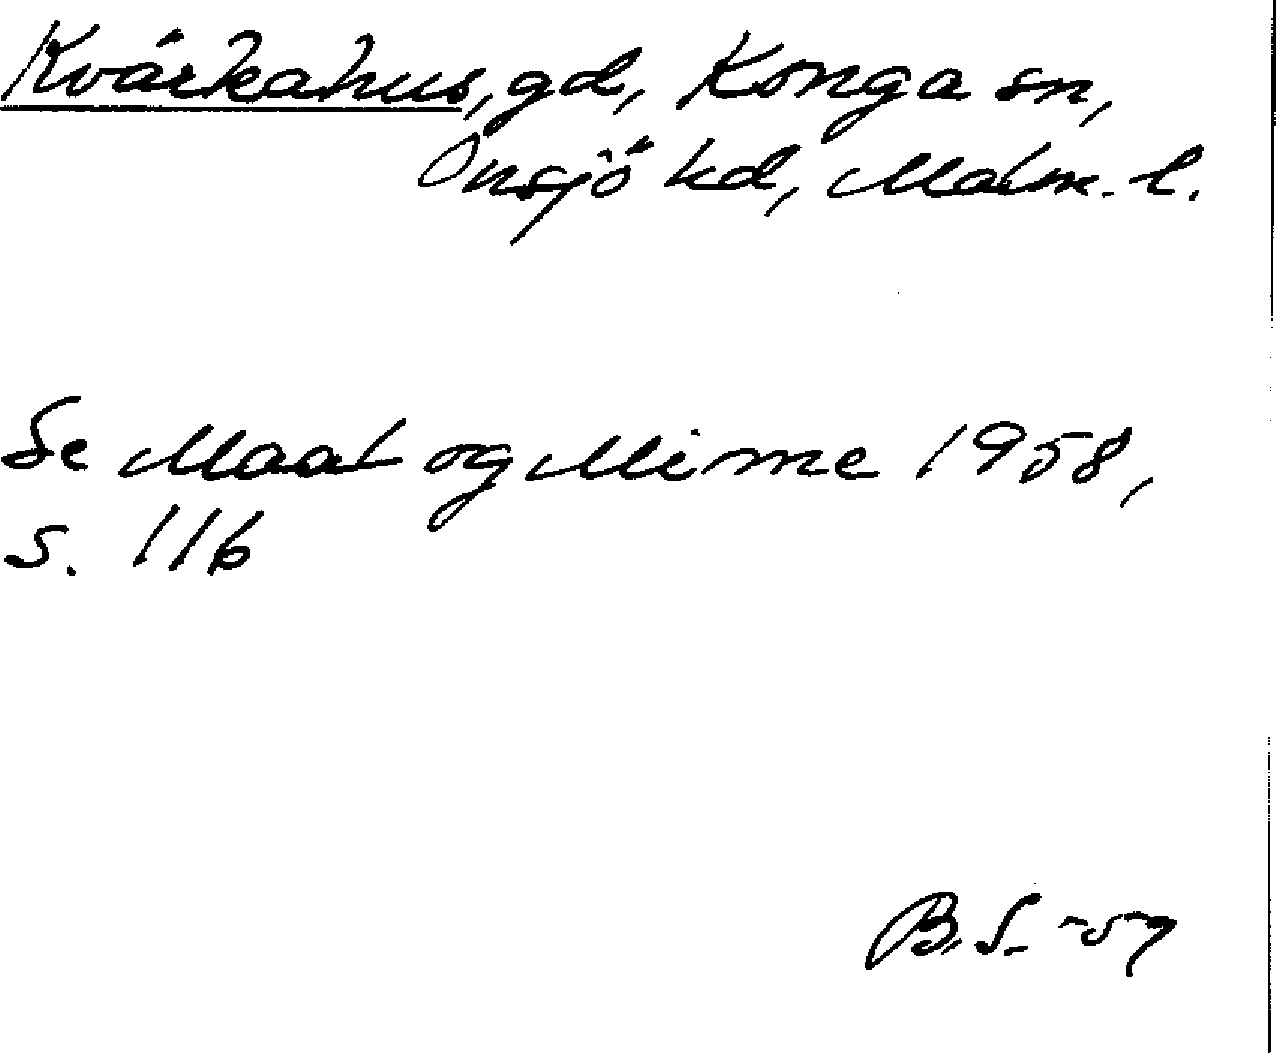 Kvärkahus, gd, Konga sn,
Onsjö hd, Malm. l.
Se Maal og Minne 1958,
s. 116
B. S. -59